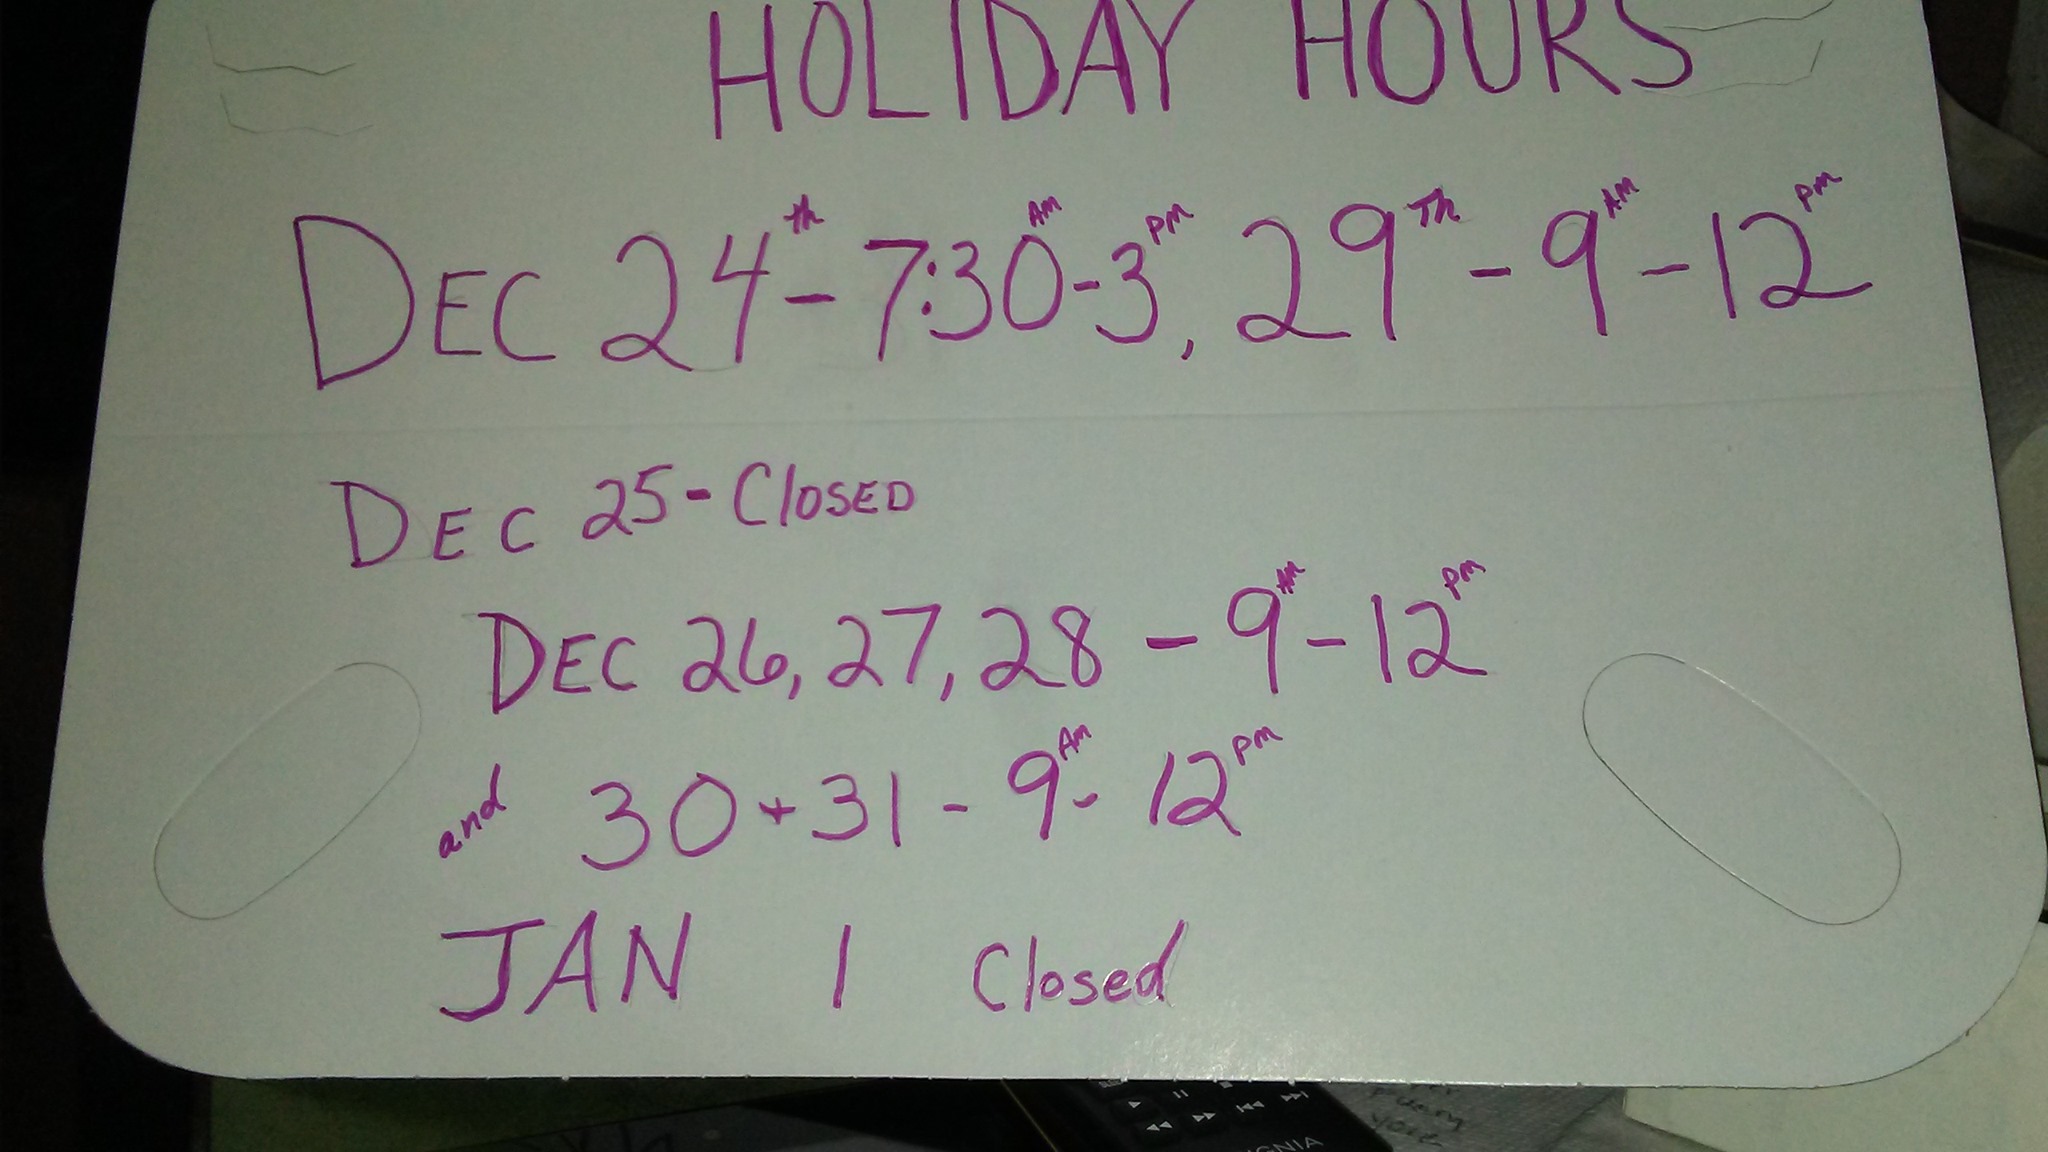 HOLIDAY HOURS
DEC 24th - 7:30AM - 3PM, 29Th - 9AM - 12PM
DEC 25 - ClOSED
DEC 26, 27, 28 - 9AM - 12PM
and 30 + 31 - 9AM - 12PM
JAN 1 Closed